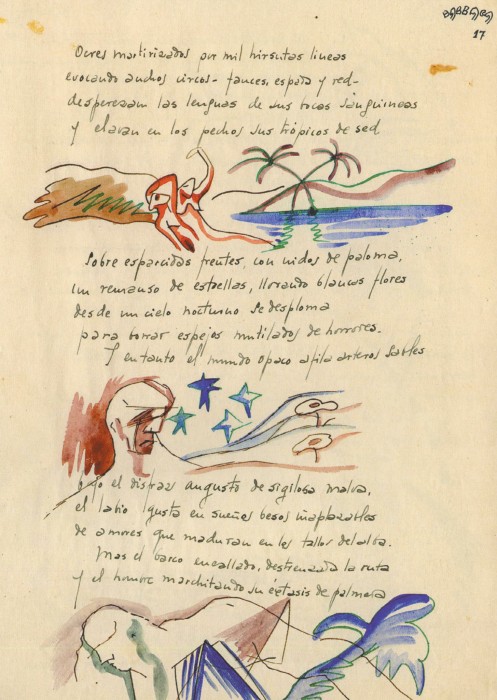 17
Ocres martirizados por mil hirsutas lineas
evocando anchos circos - fauces, espada y red -
desperezan las lenguas de sus bocas sanguineas
y clavan en los pechos sus trópicos de sed
Sobre esparcidas frentes, con nidos de paloma,
un remanso de estrellas, llorando blancas flores
desde un cielo nocturno se desploma
para borrar espejos mutilados de horrores.
Y en tanto el mundo opaco afila arteros sables
bajo el disfraz augusto de sigilosa malva,
el labio gusta en sueños besos inaplazables
de amores que maduran en los tallos del alba.
Mas el barco encallado, destrenzada la ruta
y el hombre marchitando su éxtasis de palmera